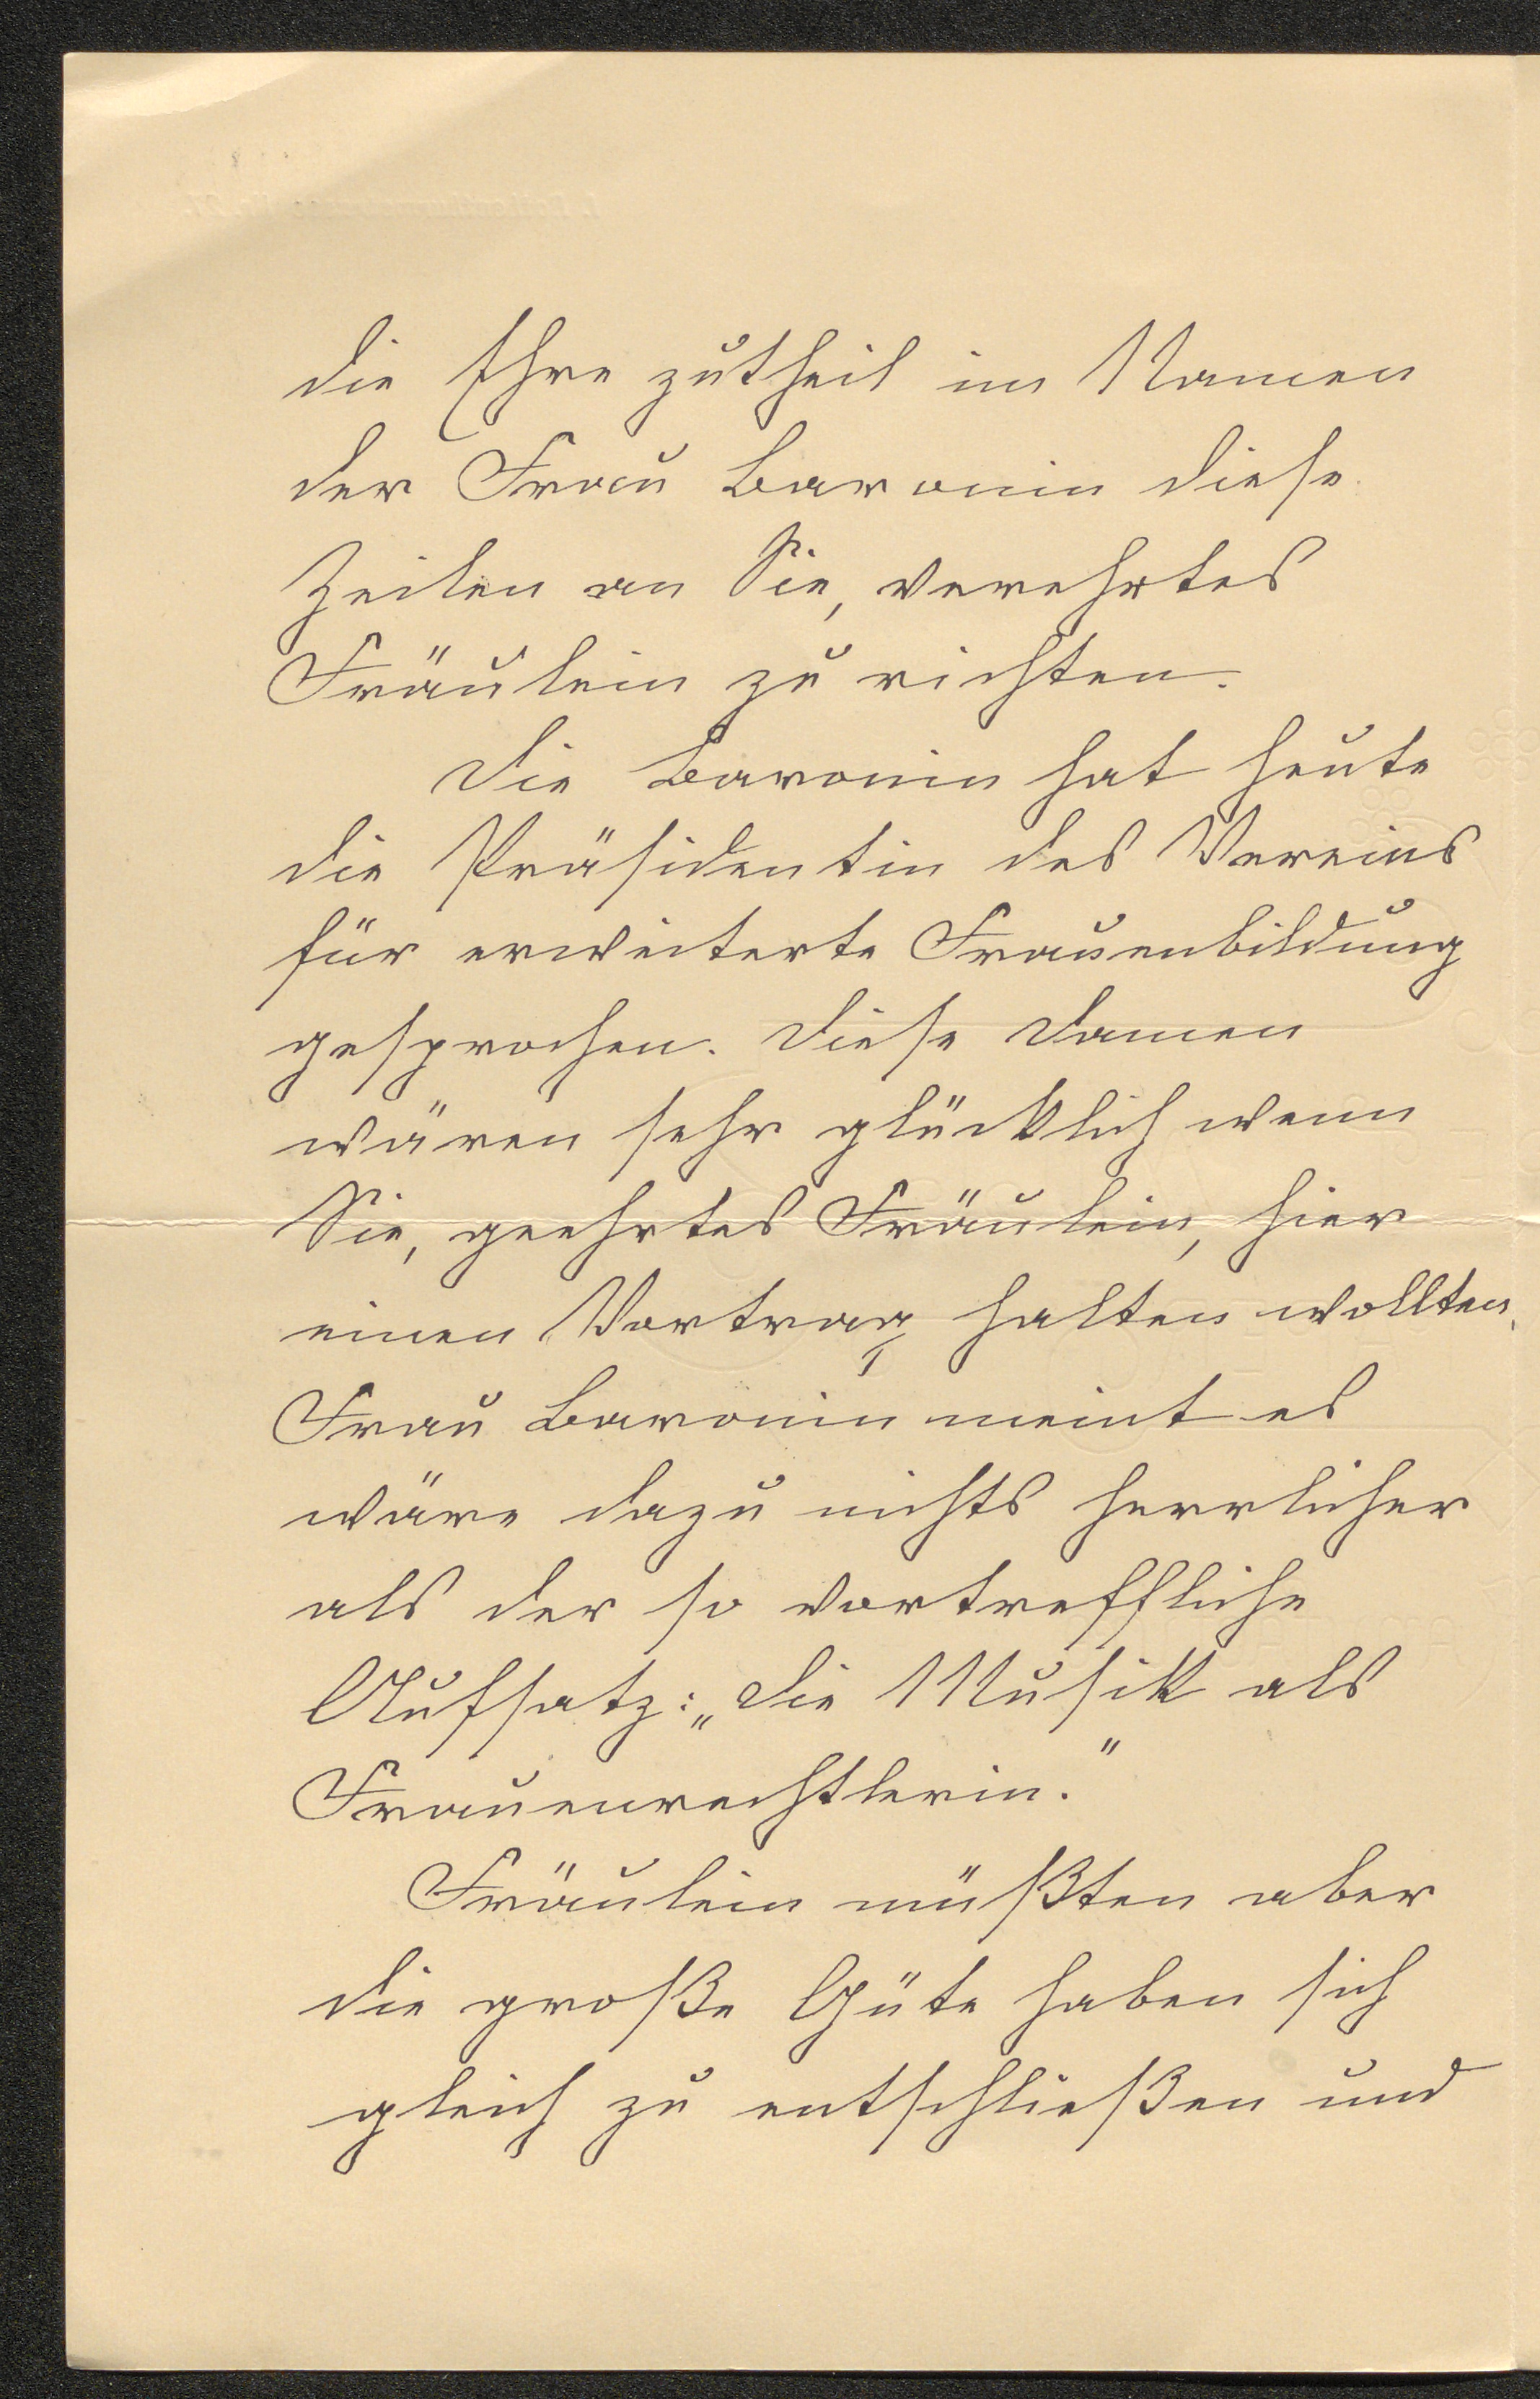 die Ehre zutheil im Namen
der Frau Baronin diese
Zeilen an Sie, verehrtes
Fräulein zu richten.
Die Baronin hat heute
die Präsidentin des Vereins
für erweiterte Frauenbildung
gesprochen. Diese Damen
wären sehr glücklich wenn
Sie, geehrtes Fräulein, hier
einen Vortrag halten wollten.
Frau Baronin meint es
wäre dazu nichts herrlicher
als der so vortreffliche
Aufsatz: „Die Musik als
Frauenrechtlerin."
Fräulein müßten aber
die große Güte haben sich
gleich zu entschließen und